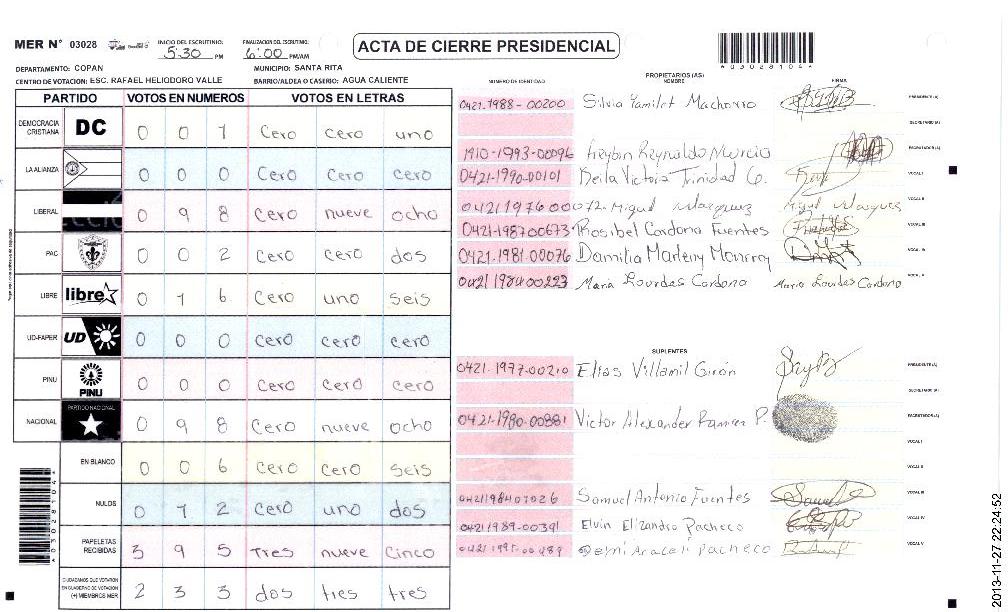 MER N° 03028 INICIO DEL ESCRUTINIO: 5:30 PM FINALIZACION DEL ESCRUTINIO: 6:00 PM/AM
ACTA DE CIERRE PRESIDENCIAL
A030281044
DEPARTAMENTO: COPAN MUNICIPIO: SANTA RITA
CENTRO DE VOTACION: ESC. RAFAEL HELIODORO VALLE BARRIO/ALDEA O CASERIO: AGUA CALIENTE
PARTIDO VOTOS EN NUMEROS VOTOS EN LETRAS
DEMOCRACIA CRISTIANA DC 0 0 1 Cero cero uno
LA ALIANZA 0 0 0 Cero Cero cero
LIBERAL 0 9 8 Cero nueve ocho
PAC 0 0 2 Cero cero dos
LIBRE libre 0 1 6 Cero uno seis
UD-FAPER UD 0 0 0 Cero cero cero
PINU PINU 0 0 0 Cero Cero cero
NACIONAL PARTIDO NACIONAL 0 9 8 Cero nueve ocho
EN BLANCO 0 0 6 Cero Cero seis
NULOS 0 1 2 Cero uno dos
PAPELETAS RECIBIDAS 3 9 5 Tres nueve Cinco
CIUDADANOS QUE VOTARON EN CUADERNO DE VOTACION (+) MIEMBROS MER 2 3 3 dos tres tres
PROPIETARIOS (AS)
NUMERO DE IDENTIDAD NOMBRE FIRMA
0421-1988-00200 Silvia Yamilet Machorro PRESIDENTE(A)
SECRETARIO(A)
1910-1993-00096 Reynaldo Murcia ESCRUTADOR(A)
0421-1990-00101 Keila Victoria Trinidad G. VOCAL I
0421 1976 00072 Miguel Vasquez Miguel Vasquez VOCAL II
0421-1987 00673 Rosibel Cardona Fuentes VOCAL III
0421-1981-00076 Damilia Marleny Monrroy VOCAL IV
0421 1984 00223 Maria Lourdes Cardona Maria Lourdes Cardona VOCAL V
SUPLENTES
0421-1977-00210 Elias Villamil Girón PRESIDENTE(A)
SECRETARIO(A)
0421-1980-00881 Victor Alexander Ramirez P. ESCRUTADOR(A)
VOCAL I
VOCAL II
0421198401026 Samuel Antonio Fuentes VOCAL III
0421 1989-00391 Elvin Elizandro Pacheco VOCAL IV
Araceli pacheco VOCAL V
A030281044
2013-11-27 22:24:52